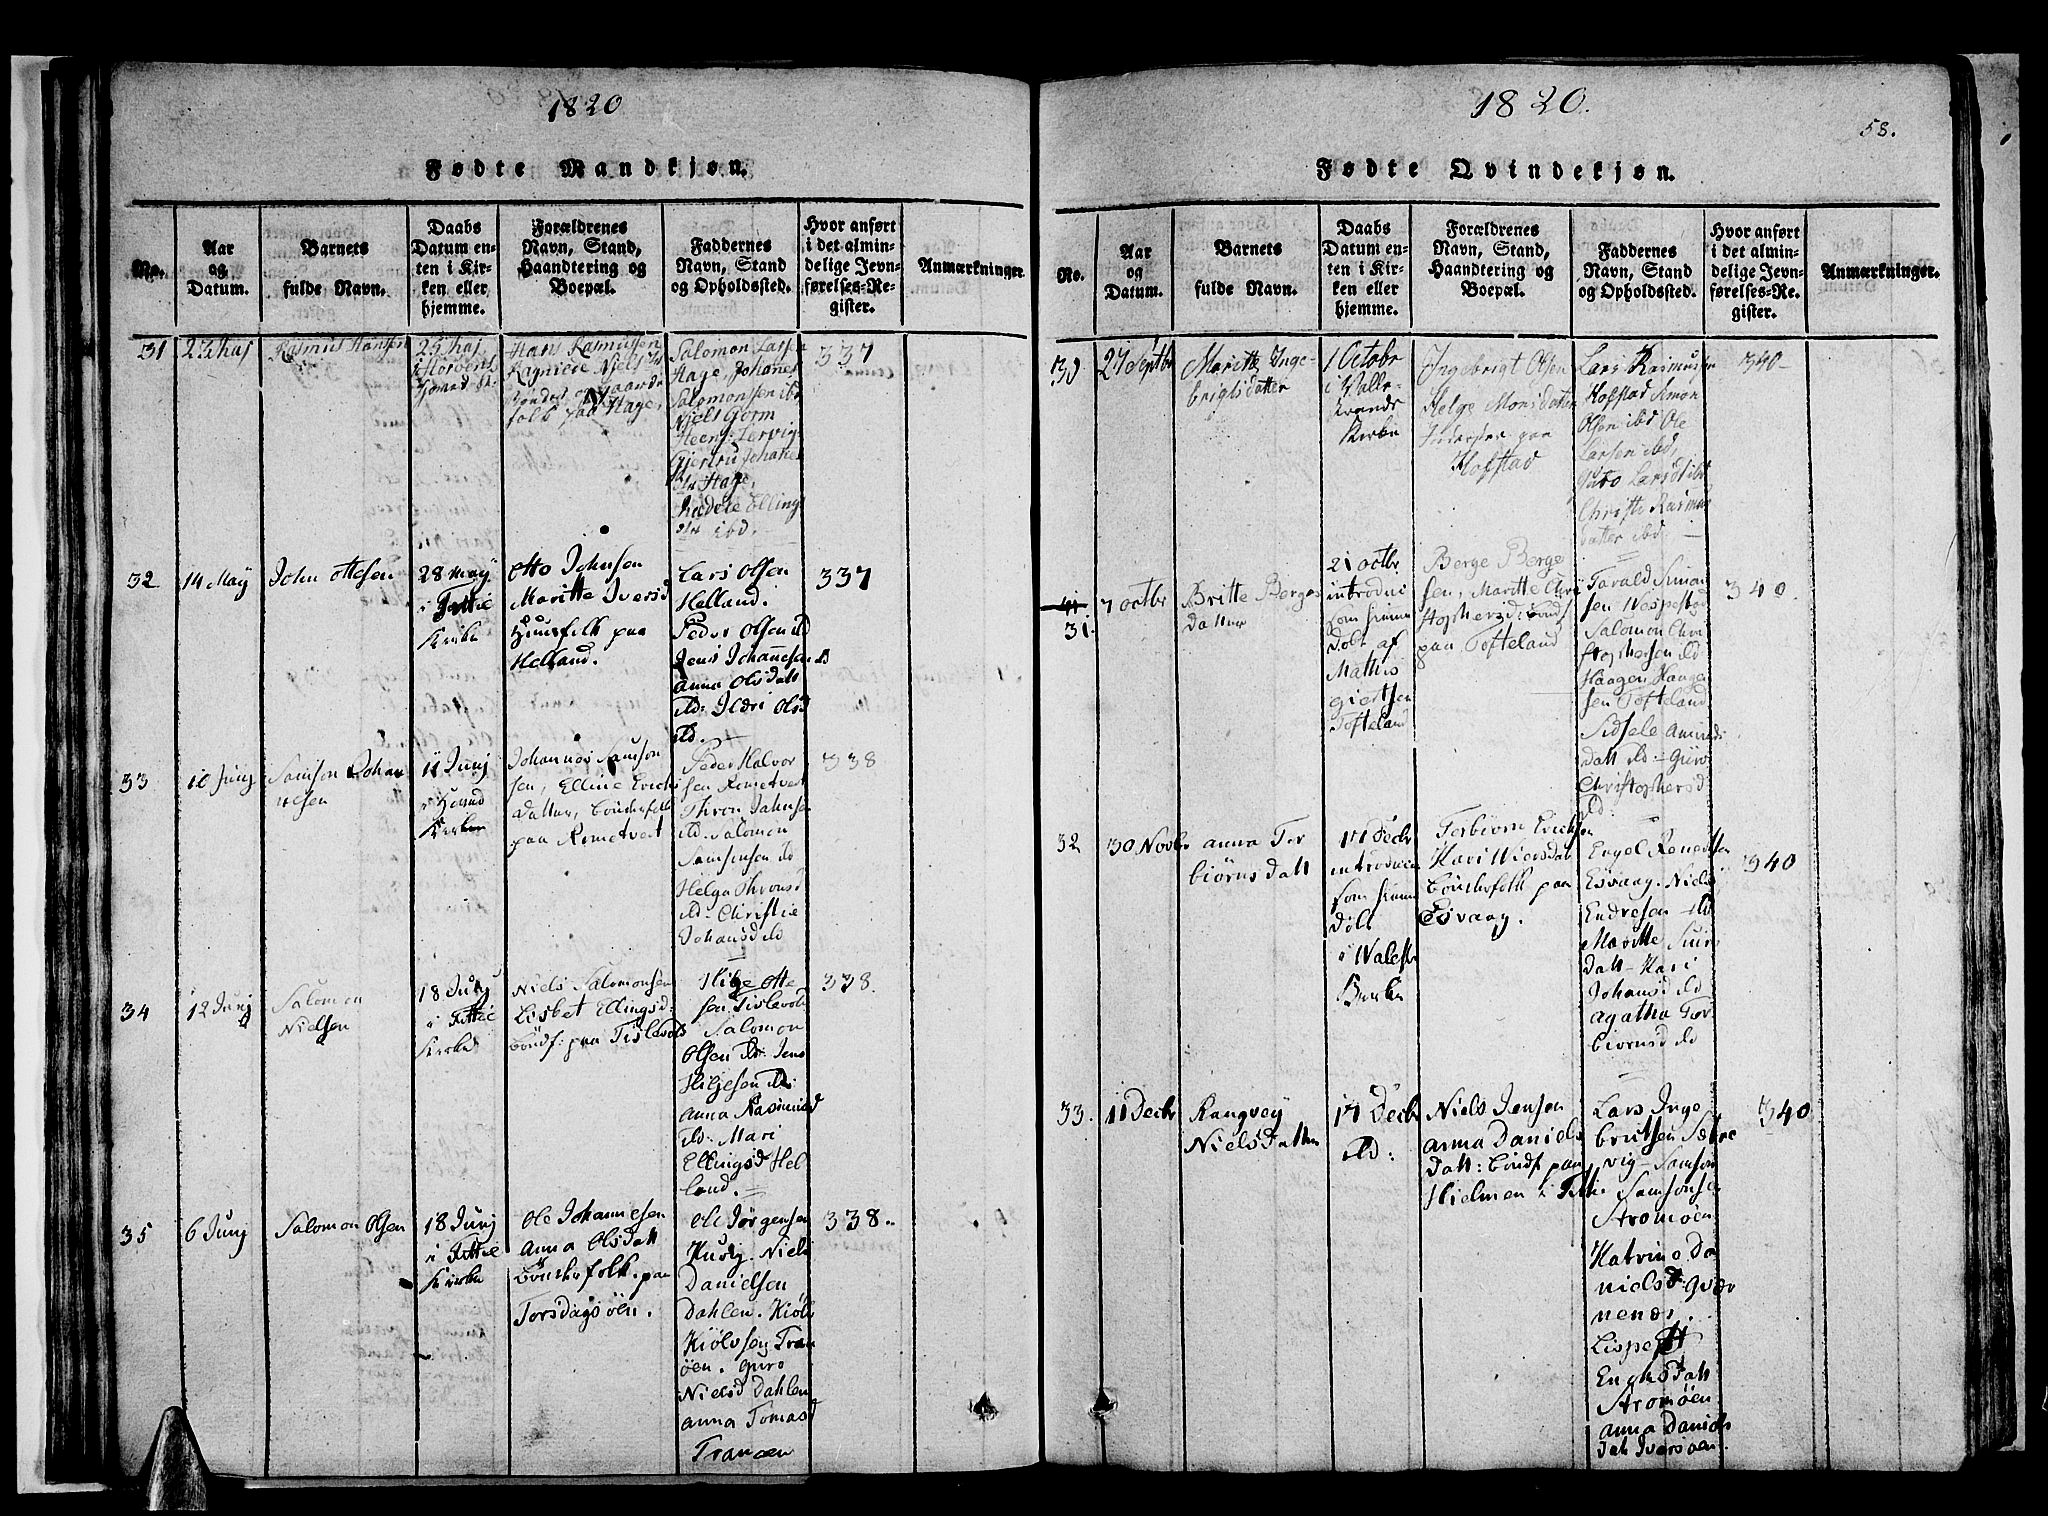 1820
Fødte Mandkjøn.
No.
Aar
og
Datum.
Barnets
fulde Navn.
Daabs
Datum en-
ten i Kir-
ken eller
hjemme.
Forældrenes
Navn, Stand,
Haandtering og
Boepæl.
Faddernes
Navn, Stand
og Opholdssted.
Hvor anført
i det almin-
delige Jevn-
førelses-Re-
gister.
Anmærkninger
31
Rasmus Hansen
Hans Rasmussen
folk paa Hage,
Salomon
Hage, Johanes
Salomonsen ibd
Niels Gorm
Hage,
ibd.
337
32
14 May
John Ottesen
28 May
i Tittie
Kirke
Otto Johnsen
Maritte Iversd
Huusfolk paa
Helland.
Lars Olsen
Helland.
Peder Olsen ild
Jens Johannesen
Anna Olsdatt
ild: Ildri Olsd
ild.
337
33
10 Junj
Samson Johan
nesen
11 Junj
i
Kirken
Johannes Samson
sen, Elline Erichs
datter, bønderfolk
paa Remetvet
Peder Halvor
sen Remetvet
Thron Johnsen
ild. Salomon
Samsensen ild
Helga Thronsd
ild. Christie
Johansd ild
338
34
12 Junj
Salomon
Nielsen
18 Junj
i Tittie
Kirke
Niels Salomonsen
Lisbet Ellingsd:
bøndf: paa Tislevold
Hilge Otte
sen Tislevold
Salomon
Olsen ild. Jens
Hiljesen ild:
Anna Rasmusd
ild: Mari
Ellingsd Hel
land.
338.
35
6 Junj
Salomon Olsen
18 Junj
i Tittie
Kirke
Ole Johannesen
Anna Olsdatt
bønderfolk paa
Torsdagsøen.
Ole Jørgensen
Kusvig. Niels
Danielsen
Dahlen. Kiøl
Kiølvsen Tran
øen. Guro
Nielsd Dahlen
Anna Tomasd
Tranøen
338.
1820.
58.
Fødte Qvindekjøn.
No.
Aar
og
Datum.
Barnets
fulde Navn.
Daabs
Datum en-
ten i Kir-
ken eller
hjemme.
Forældrenes
Navn, Stand,
Haandtering og
Boepæl.
Faddernes
Navn, Stand
og Opholdssted.
Hvor anført
i det almin-
delige Jevn-
førelses-Re-
gister.
Anmærkninger.
30
27 Septbr
Maritte Inge-
brigtsdatter
1 Octobr
i Valle-
Kirke
Ingebrigt Olsen
Helge Monsdatter
Inderster paa
Hofstad
Lars Rasmusen
Hofstad Simon
Olsen ibd Ole
Larsen ibd,
Larsd ibd
Christi Rasmus
datter ibd.
340
31.
7 Octbr
Britte Berges
datter
21 Octbr.
introduc
som hjemme
døbt af
Mathis
Giertsen
Tofteland
Berge Berge
sen, Maritte Chri
stophersd: bøndf
paa Tofteland
Tarald Simon
sen Wespestad
Salomon Chri
stophersen ild
Haagen Haagen
sen Tofteland
Sidsele
datt ild: Guro
Christophersd
ild
340.
32
30 Novbr
Anna Tor
biørnsdatt
17 Decbr
introducer
som hjemme
døbt
i
Kirke
Torbiørn Erichsen
Kari Niersdatt
bønderfolk paa
Esvaag.
Engel
Esvaag. Niels
Endresen ild
Maritte
datt Kari
Johansd ild
Agatha Tor
biørnsd ild
340
33.
11 Decbr
Rangvey
Nielsdatter
17 Decbr
ild:
Niels Jensen
Anna Daniels
datt: bøndf paa
Hielmen i Tittie
Lars Inge
britsen Sætre
vig Samson
Samsonsen
Strømøen
Katrine Da
nielsd:
nenæs.
Lispett
Strømøen
Anna Daniels
dat Iversøen.
340